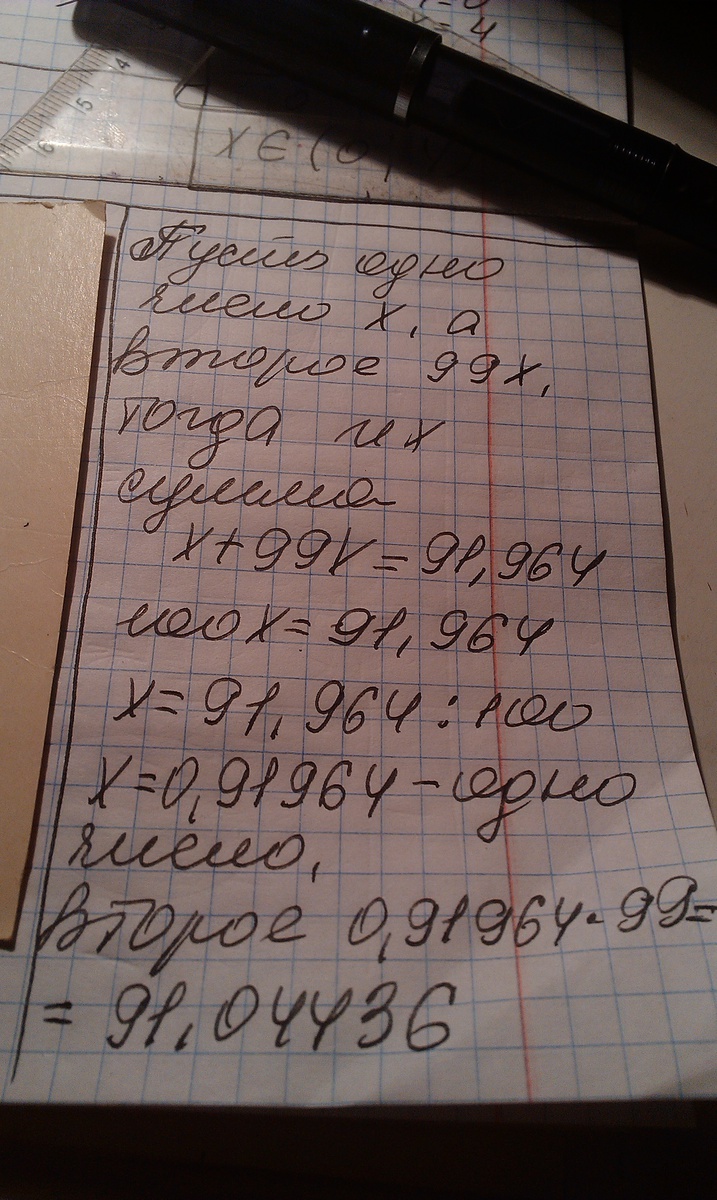 = 4
4
5
6
X ∈ (0
Пусть одно
число x, а
второе 99x,
тогда их
сумма
x+99x=91,964
100x=91,964
x=91,964:100
x=0,91964-одно
число,
второе 0,91964·99=
=91,04436